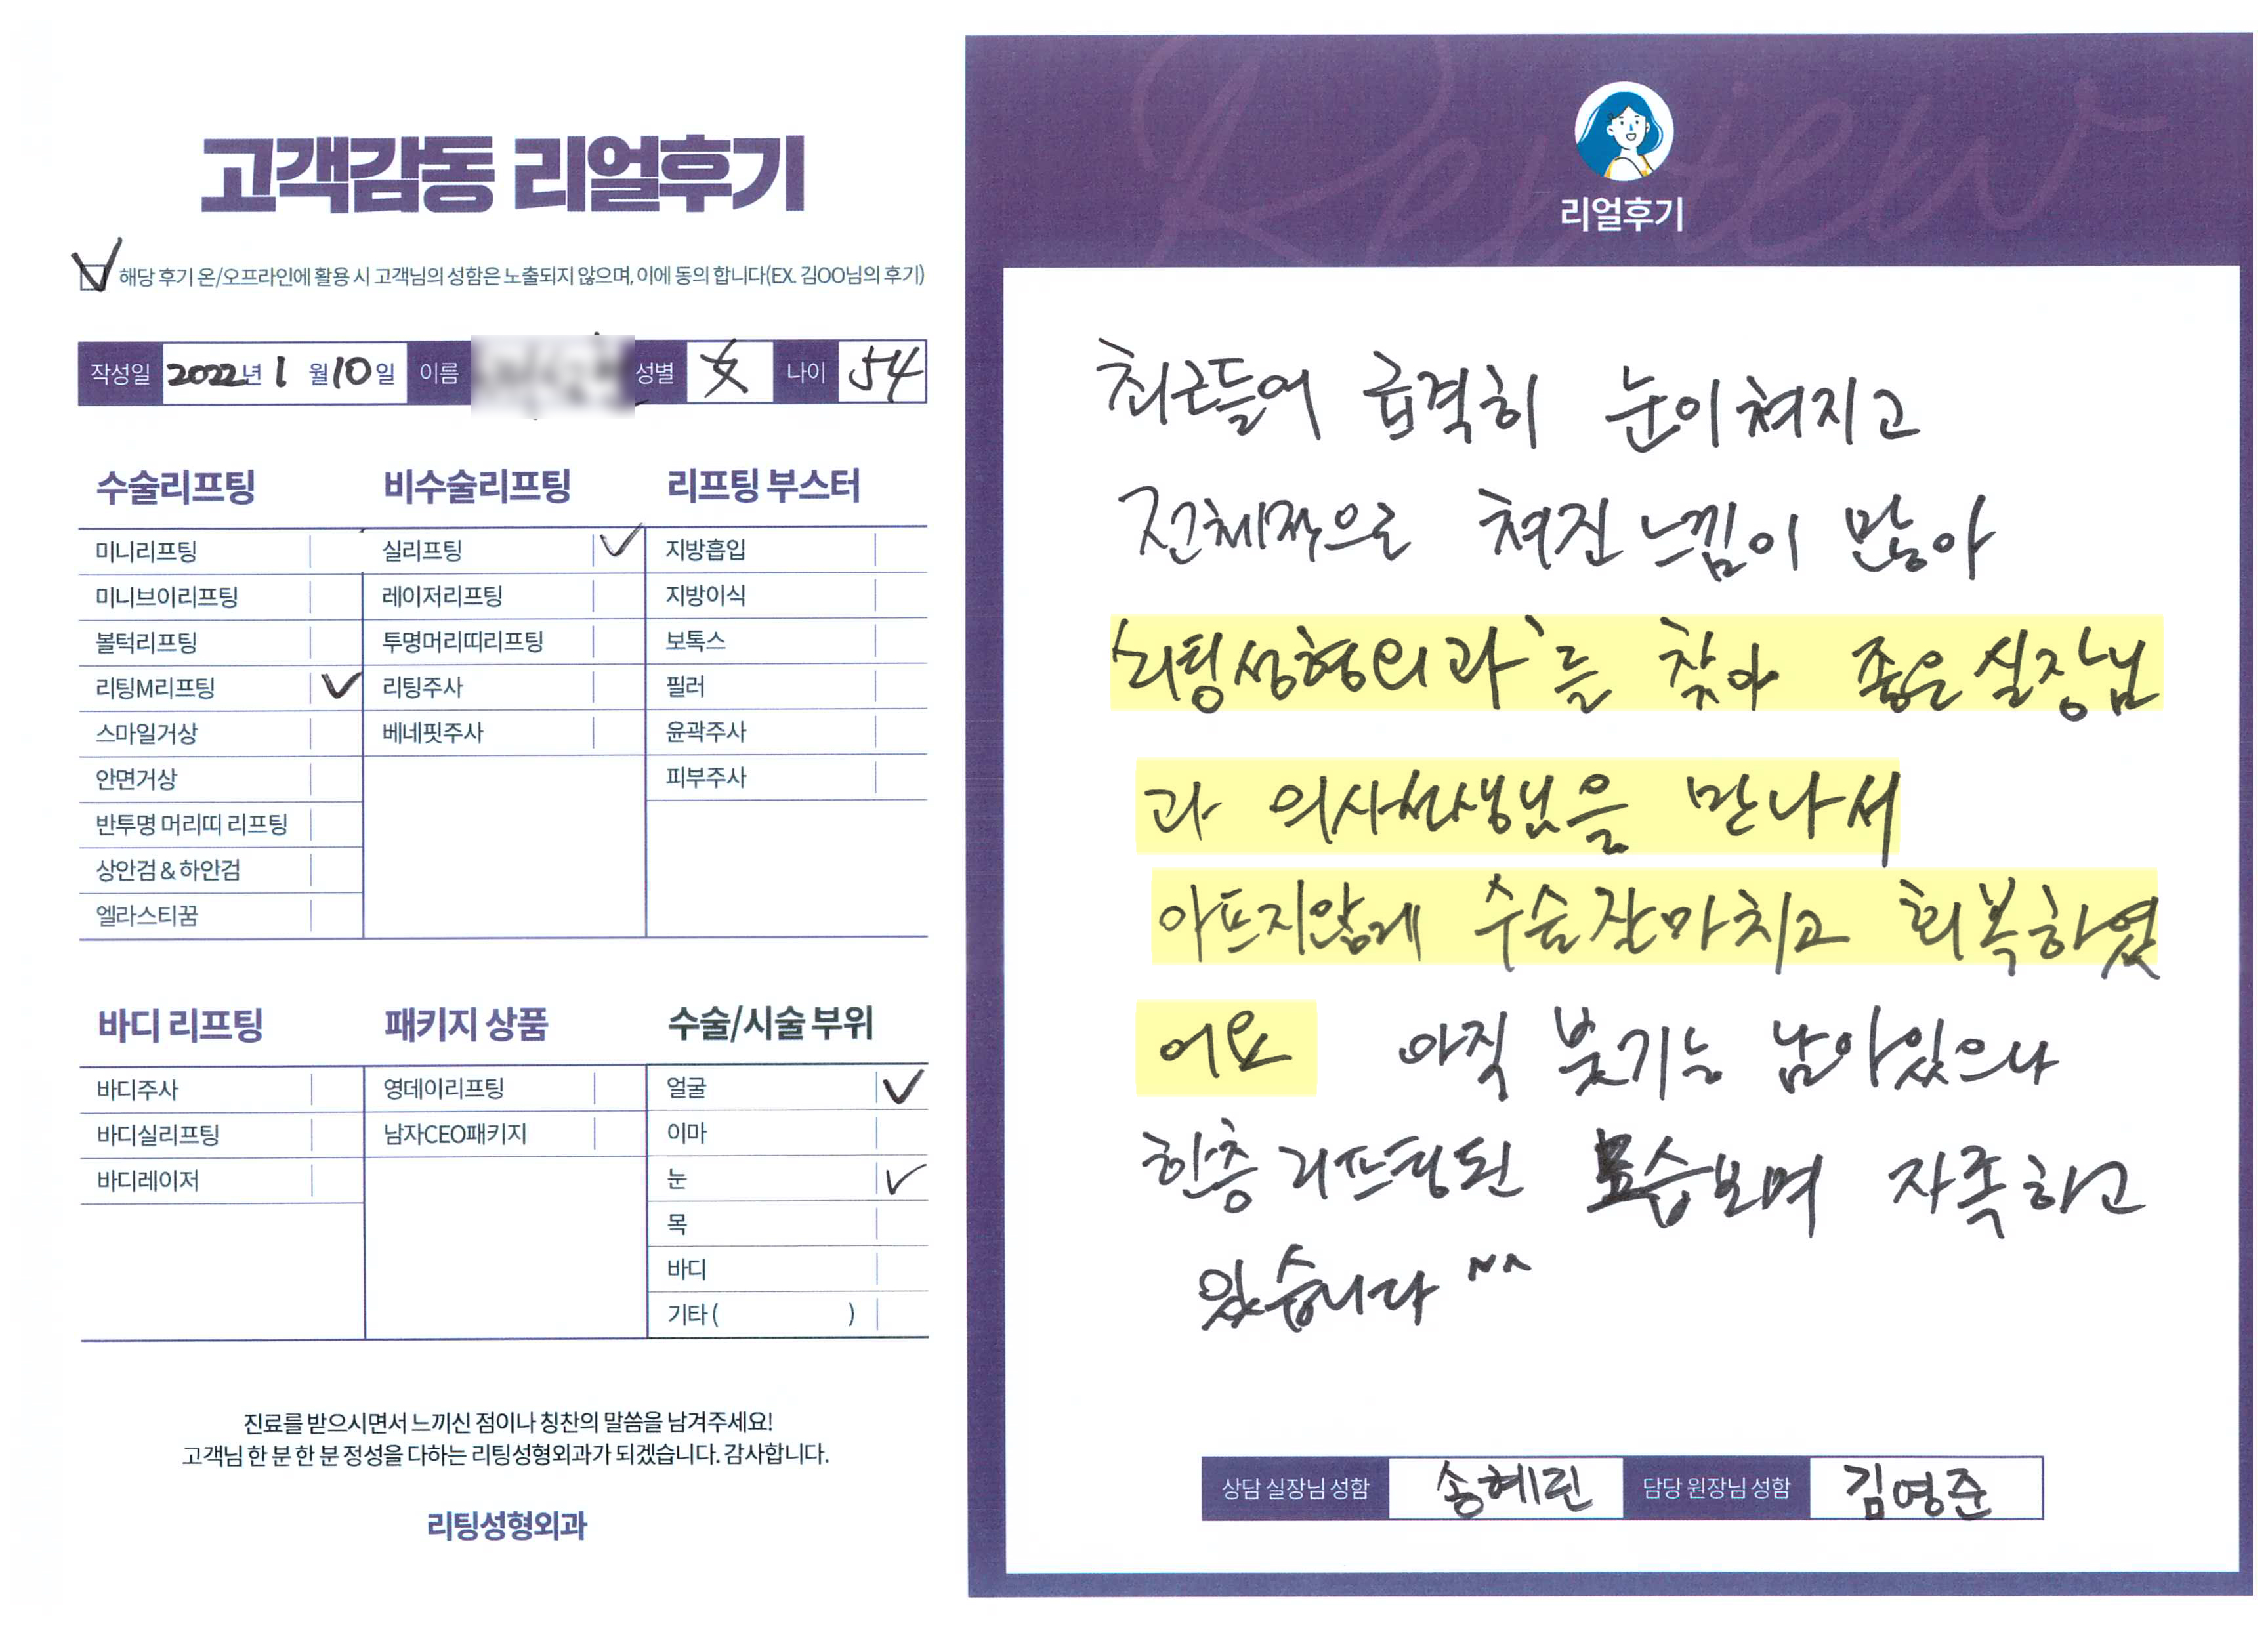 고객감동 리얼후기
해당 후기 온/오프라인에 활용 시 고객님의 성함은 노출되지 않으며, 이에 동의 합니다(EX. 김OO님의 후기)
작성일 2022년 1월 10일 이름 성별 女 나이 54
수술리프팅
미니리프팅
미니브이리프팅
볼턱리프팅
리팅M리프팅
스마일거상
안면거상
반투명 머리띠 리프팅
상안검 & 하안검
엘라스티꿈
비수술리프팅
실리프팅
레이저리프팅
투명머리띠리프팅
리팅주사
베네핏주사
리프팅 부스터
지방흡입
지방이식
보톡스
필러
윤곽주사
피부주사
바디 리프팅
바디주사
바디실리프팅
바디레이저
패키지 상품
영데이리프팅
남자CEO패키지
수술/시술 부위
얼굴
이마
눈
목
바디
기타 ( )
진료를 받으시면서 느끼신 점이나 칭찬의 말씀을 남겨주세요!
고객님 한 분 한 분 정성을 다하는 리팅성형외과가 되겠습니다. 감사합니다.
리팅성형외과
Review
리얼후기
최근들어 급격히 눈이 쳐지고
전체적으로 쳐진 느낌이 많아
'리팅성형외과'를 찾아 좋은 실장님
과 의사선생님을 만나서
아프지않게 수술잘마치고 회복하였
어요 아직 붓기는 남아있으나
한층 리프팅된 모습보며 자족하고
있습니다 ^^
상담 실장님 성함 송혜린 담당 원장님 성함 김영준